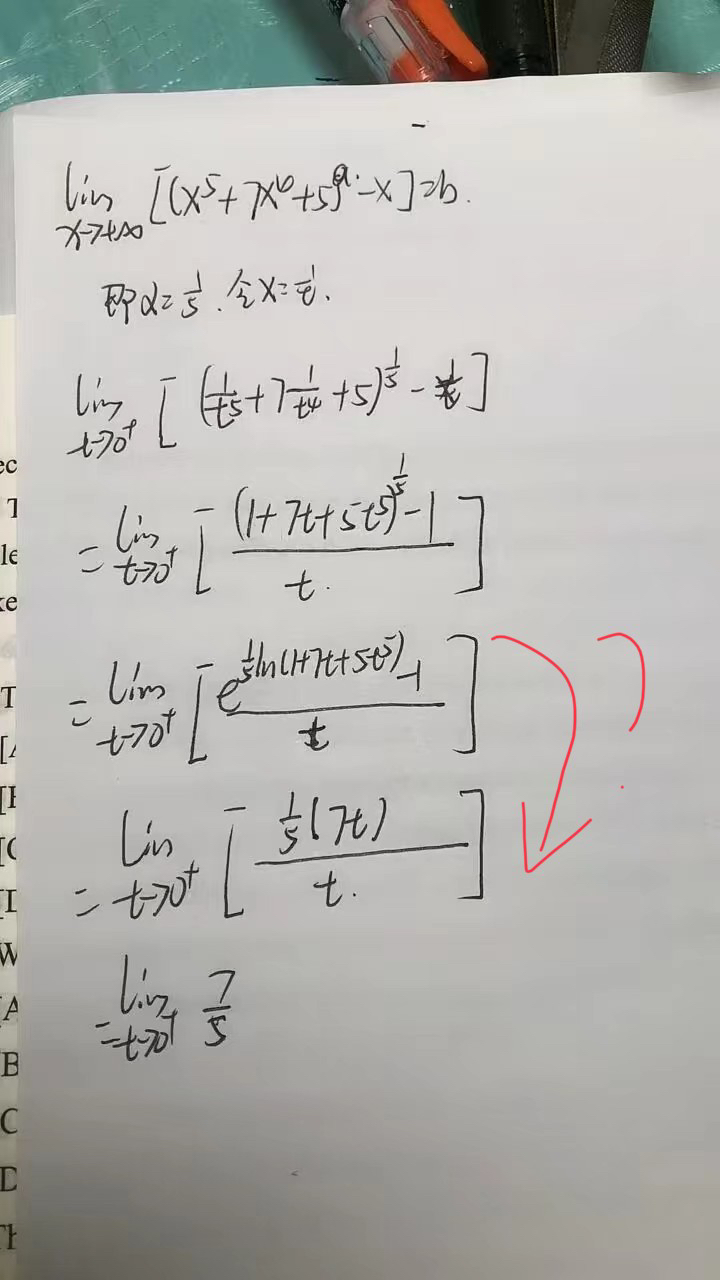 lim x→+∞ [(x⁵+7x⁶+5)^a - x] = b.
即α=1/5. 令x=1/t.
lim t→0⁺ [(1/t⁵+7 1/t⁴+5)^(1/5) - 1/t]
= lim t→0⁺ [((1+7t+5t⁵)^(1/5) - 1)/t.]
= lim t→0⁺ [(e^(1/5 ln(1+7t+5t⁵)) - 1)/t]
= lim t→0⁺ [1/5(7t)/t.]
= lim t→0⁺ 7/5
?
ec
T
le
ke
T
[A
[
[C
[
W
[A
B
C
D
Th